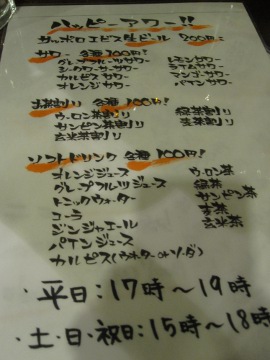 ハッピーアワー!!
サッポロエビス生ビール 200円
サワー 各種 100円!
グレープフルーツサワー レモンサワー
シークワーサーサワー ライムサワー
カルピスサワー マンゴーサワー
オレンジサワー パインサワー
お茶割り 各種 100円!
ウーロン茶割り 緑茶割り
サンピン茶割り
玄米茶割り
ソフトドリンク 各種 100円!
オレンジジュース ウーロン茶
グレープフルーツジュース 緑茶
トニックウォーター サンピン茶
コーラ
ジンジャエール 玄米茶
パインジュース
カルピス(ウォーターorソーダ)
・平日:17時〜19時
・土・日・祝日:15時〜18時